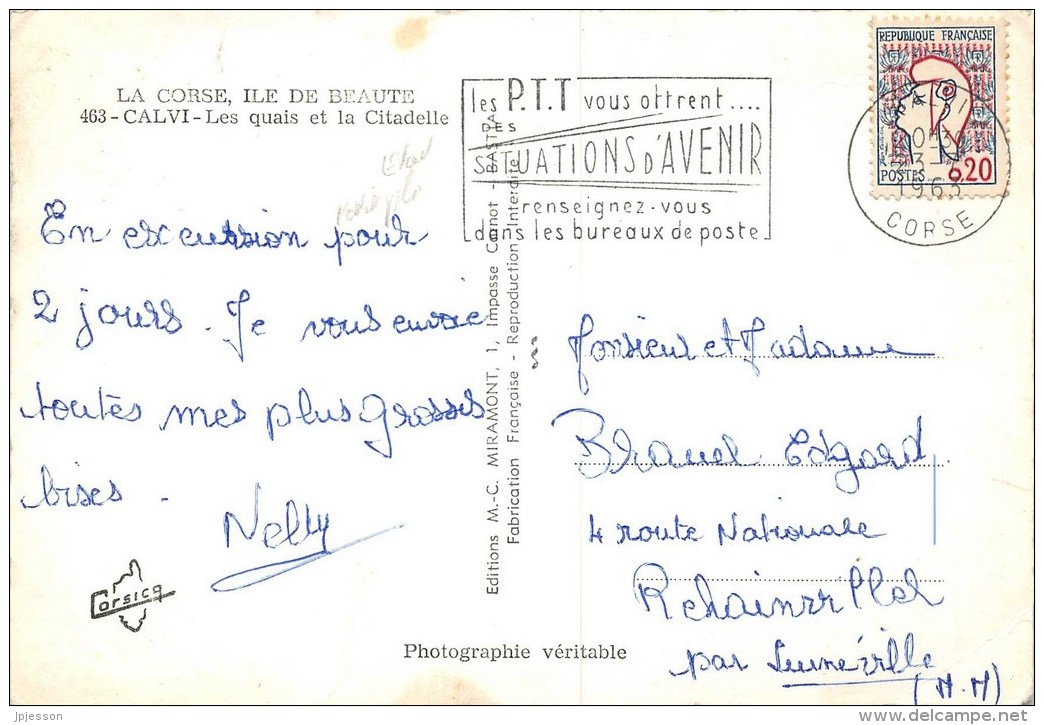 LA CORSE, ILE DE BEAUTE
463 - CALVI - Les quais et la Citadelle
les P.T.T vous offrent....
DES
SITUATIONS D'AVENIR
renseignez-vous
dans les bureaux de poste
REPUBLIQUE FRANÇAISE
POSTES 0,20
1963
CORSE
En excursion pour
2 jours. Je vous envoie
toutes mes plus grosses
bises.
Nelly
Corsica
Editions M.-C. MIRAMONT, 1, Impasse Carnot - BASTIA
Fabrication Française - Reproduction Interdite
Photographie véritable
Monsieur et Madame
Edgard
4 route Nationale
Rehainviller
par Lunéville
(M.M)
jpjesson
www.delcampe.net